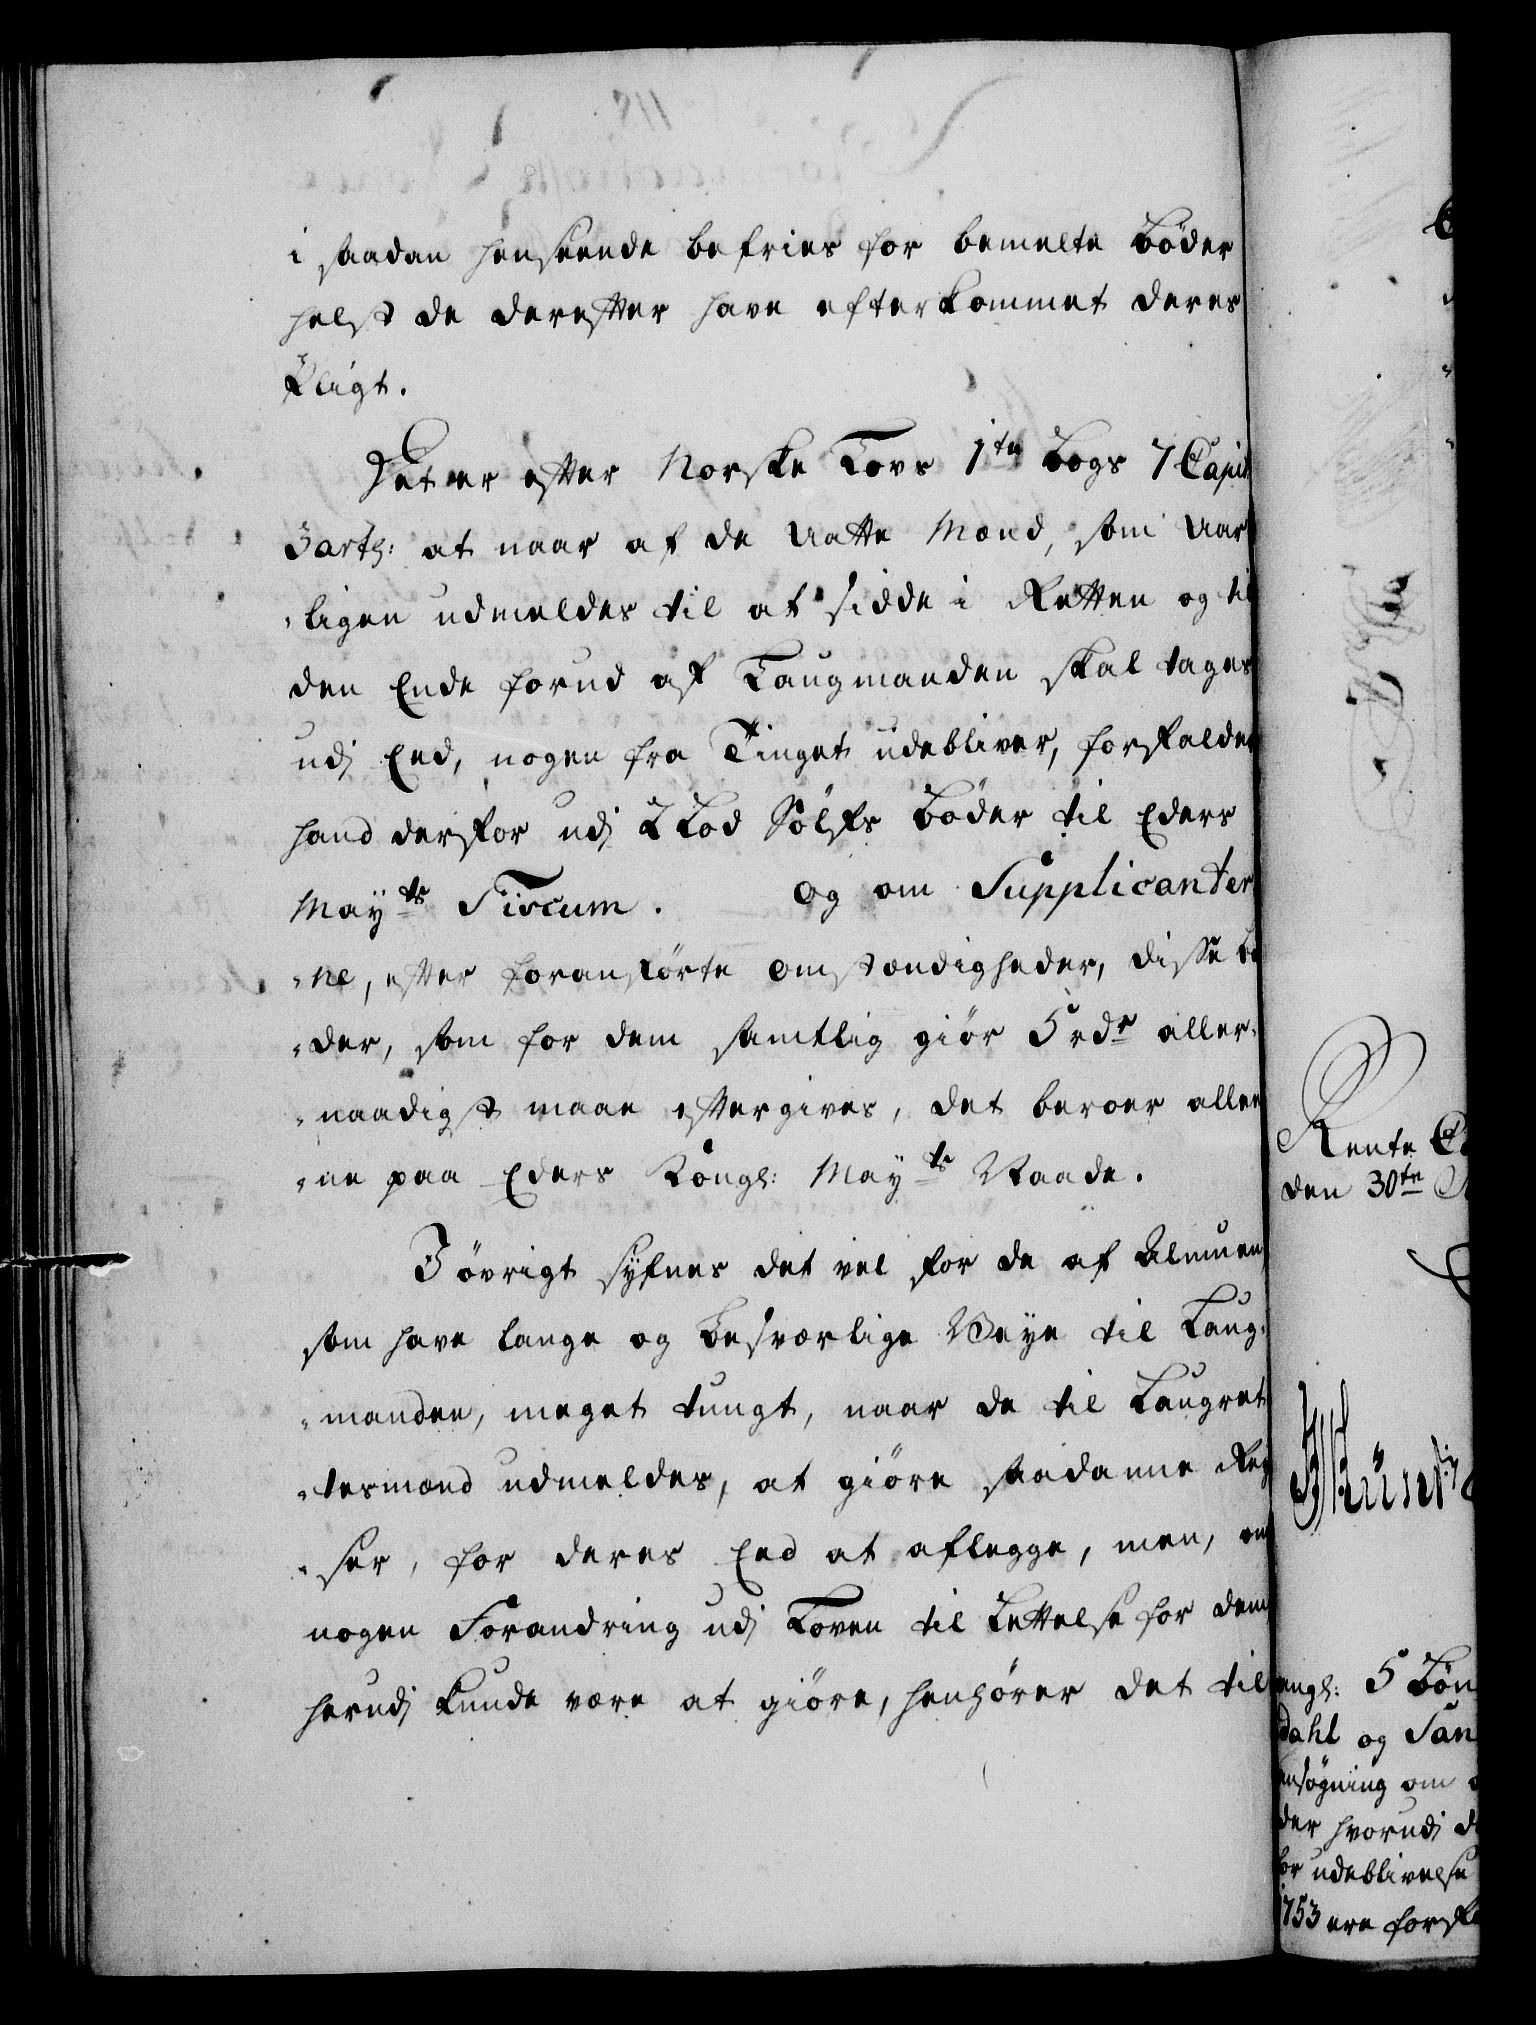 i saadan henseende befries for bemelte Bøder
helst de derefter have efterkommet deres
Pligt.
Det er efter Norske Lovs 1te Bogs 7 Capit
3 art: at naar af de Aatte Mænd, som Aar
ligen udmeldes til at sidde i Retten og til
den Ende forud af Laugmanden skal tages
udj Eed, nogen fra Tinget udebliver, forfalder
hand derfor udj 2 Lod Sølfs Bøder til Eders
Mayts Fiscum. Og om Supplicanter
ne, efter foranførte Omstændigheder, disse Bø
der, som for dem samtlig giør 5 rdr aller
naadigst maae eftergives, det beroer allee
ne paa Eders Kongl: Mayts Naade.
I øvrigt syfnes det vel for de af Almuen
som have lange og besværlige Veye til Laug
manden, meget tungt, naar de til Laugret
tesmænd udmeldes, at giøre saadanne Rey
ser, for deres Eed at aflegge, men, om
nogen Forandring udj Loven til Lettelse for dem
herudj kunde være at giøre, henhører det til
Rente
den 30te
angl: 5 Bøn
dahl og San
ansøgning om
der hvorudj d
for udeblivelse
1753 ere forfa